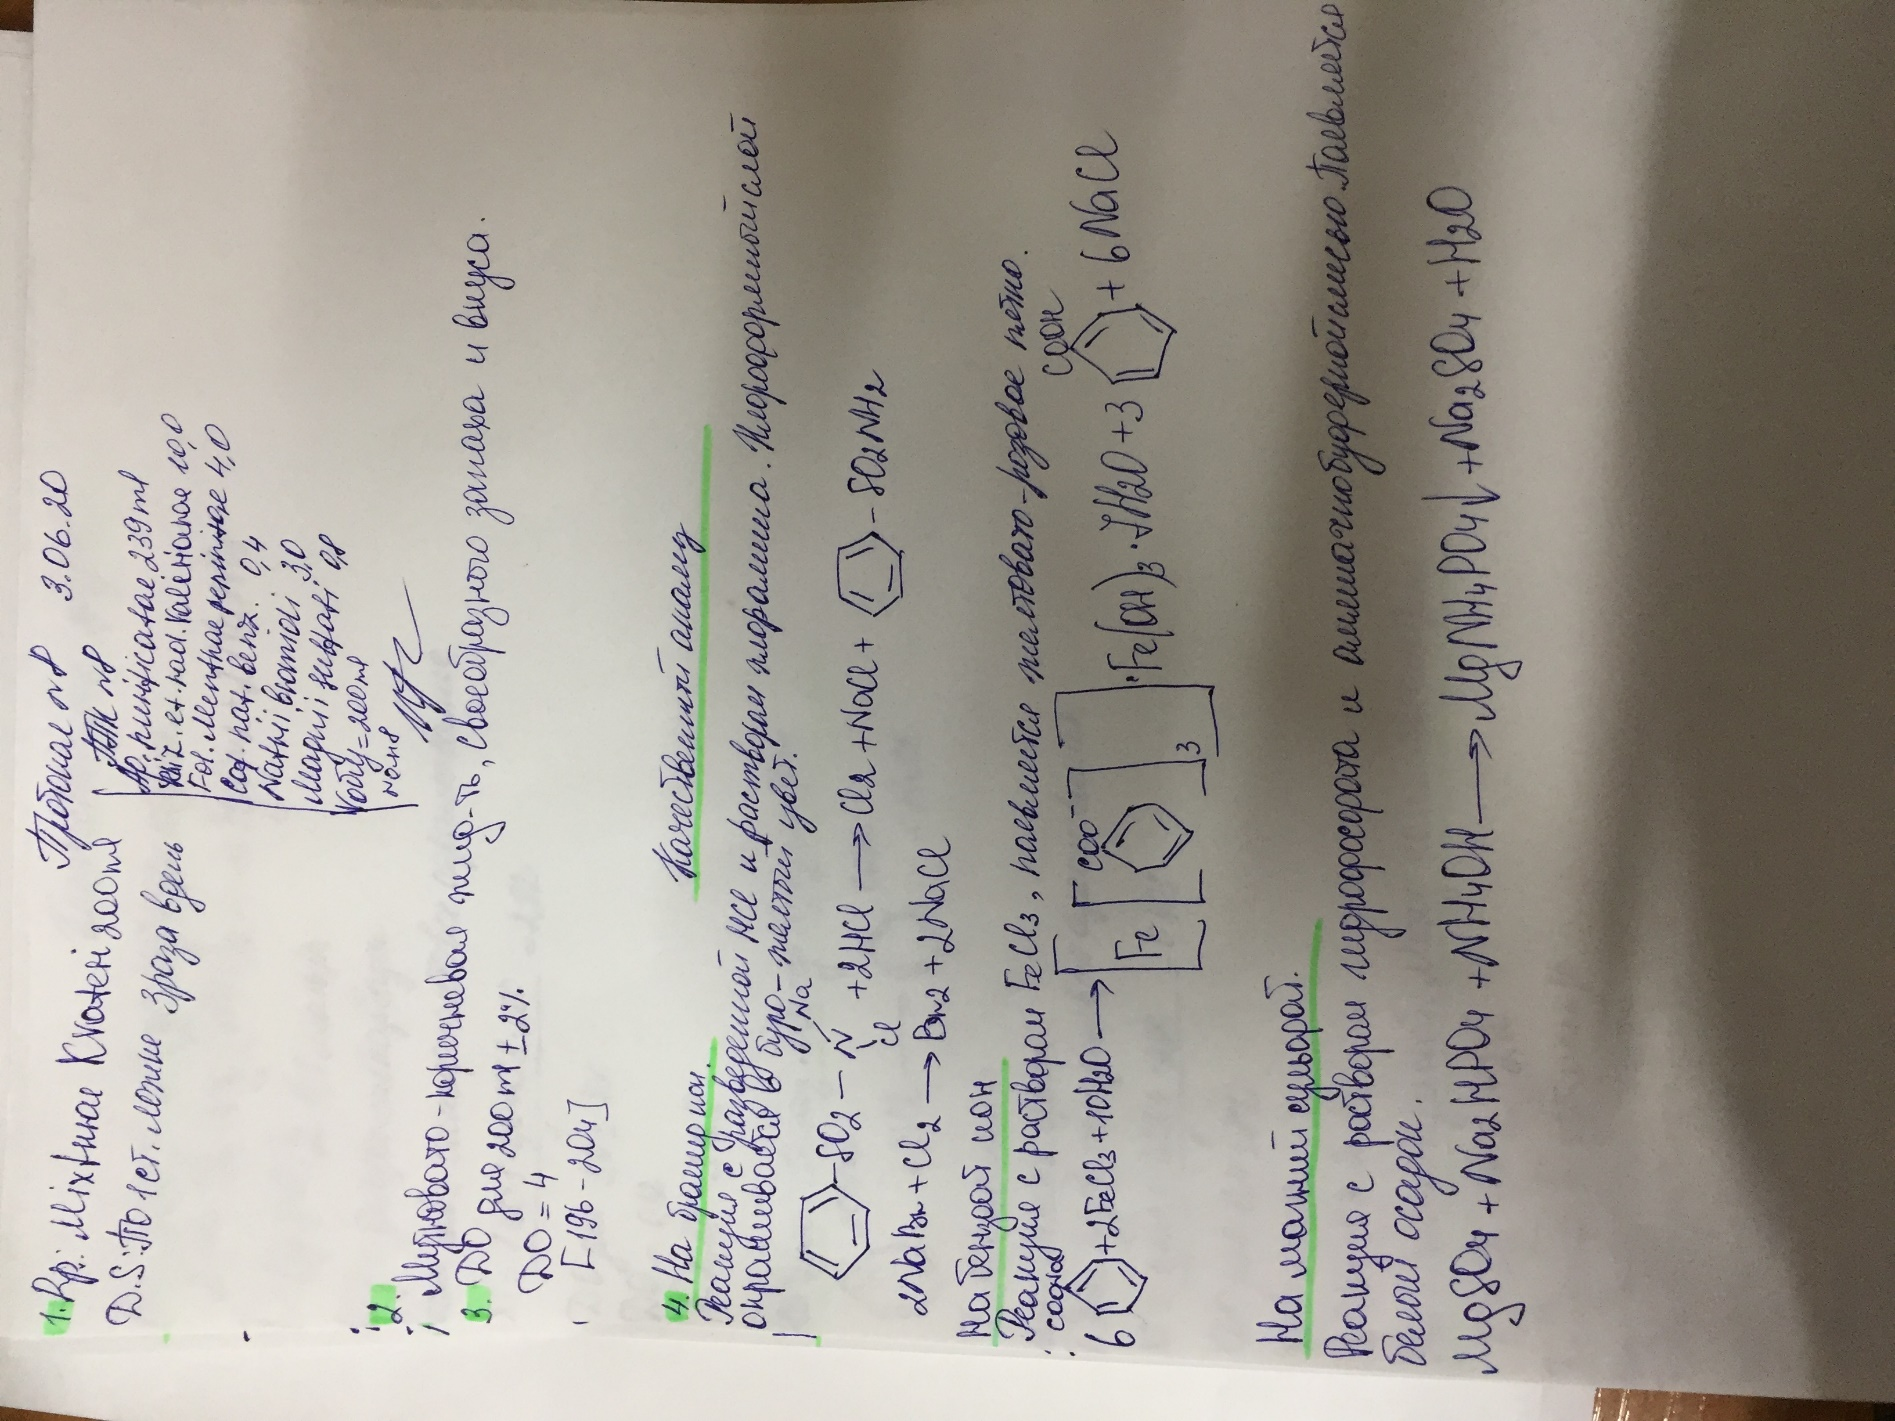 Протокол №8 3.06.20
1. Rp.: Mixturae Kvateri 200ml
D.S: По 1 ст. ложке 3 раза в день
ППК №8
Aq. purificatae 239ml
Rhiz. et. rad. Valerianae 10,0
Fol. Menthae piperitae 4,0
Cof. nat. benz. 0,4
Natrii bromidi 3,0
Magnii sulfati 0,8
Vобщ=200ml
2. Мутновато-коричневая жид-ть, своеобразного запаха и вкуса.
3. ДО для 200ml ± 2%
ДО = 4
[196-204]
Качественный анализ
4. На бромид ион.
Реакция с разведенной HCl и раствором хлорамина. Хлороформный слой
окрашивается в буро-желтый цвет.
SO2 — N Na Cl + 2HCl → Cl2 + NaCl + SO2NH2
2NaBr + Cl2 → Br2 + 2NaCl
На бензоат ион
Реакция с раствором FeCl3, появляется желтовато-розовое пятно.
6 COONa + 2FeCl3 + 10H2O → [Fe [COO⁻]3] · Fe(OH)3 · 7H2O + 3 COOH + 6NaCl
На магний сульфат.
Реакция с раствором гидрофосфата и аммиачнобуферной смесью. Появляется
белый осадок.
MgSO4 + Na2HPO4 + NH4OH → MgNH4PO4↓ + Na2SO4 + H2O